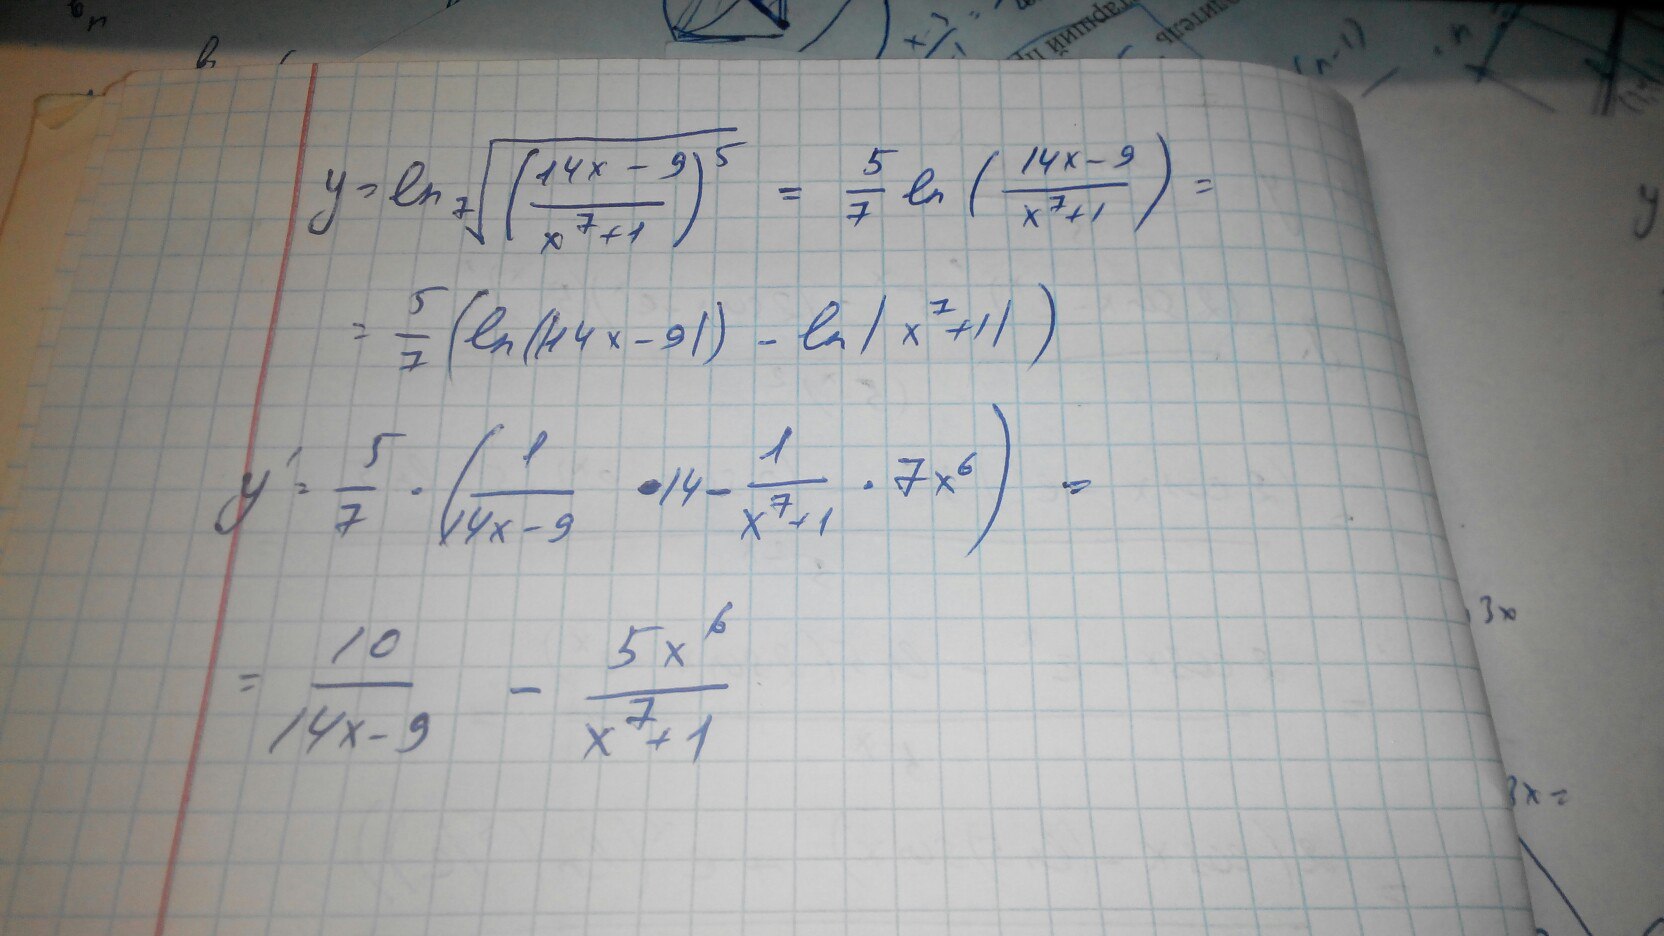 y = ln ⁷√((14x - 9)/(x⁷+1))⁵ = 5/7 ln ((14x-9)/(x⁷+1)) =
= 5/7 (ln(|14x-9|) - ln|x⁷+1|)
y' = 5/7 · (1/(14x-9) · 14 - 1/(x⁷+1) · 7x⁶) =
= 10/(14x-9) - 5x⁶/(x⁷+1)
y
3x
3x=
(n-1)